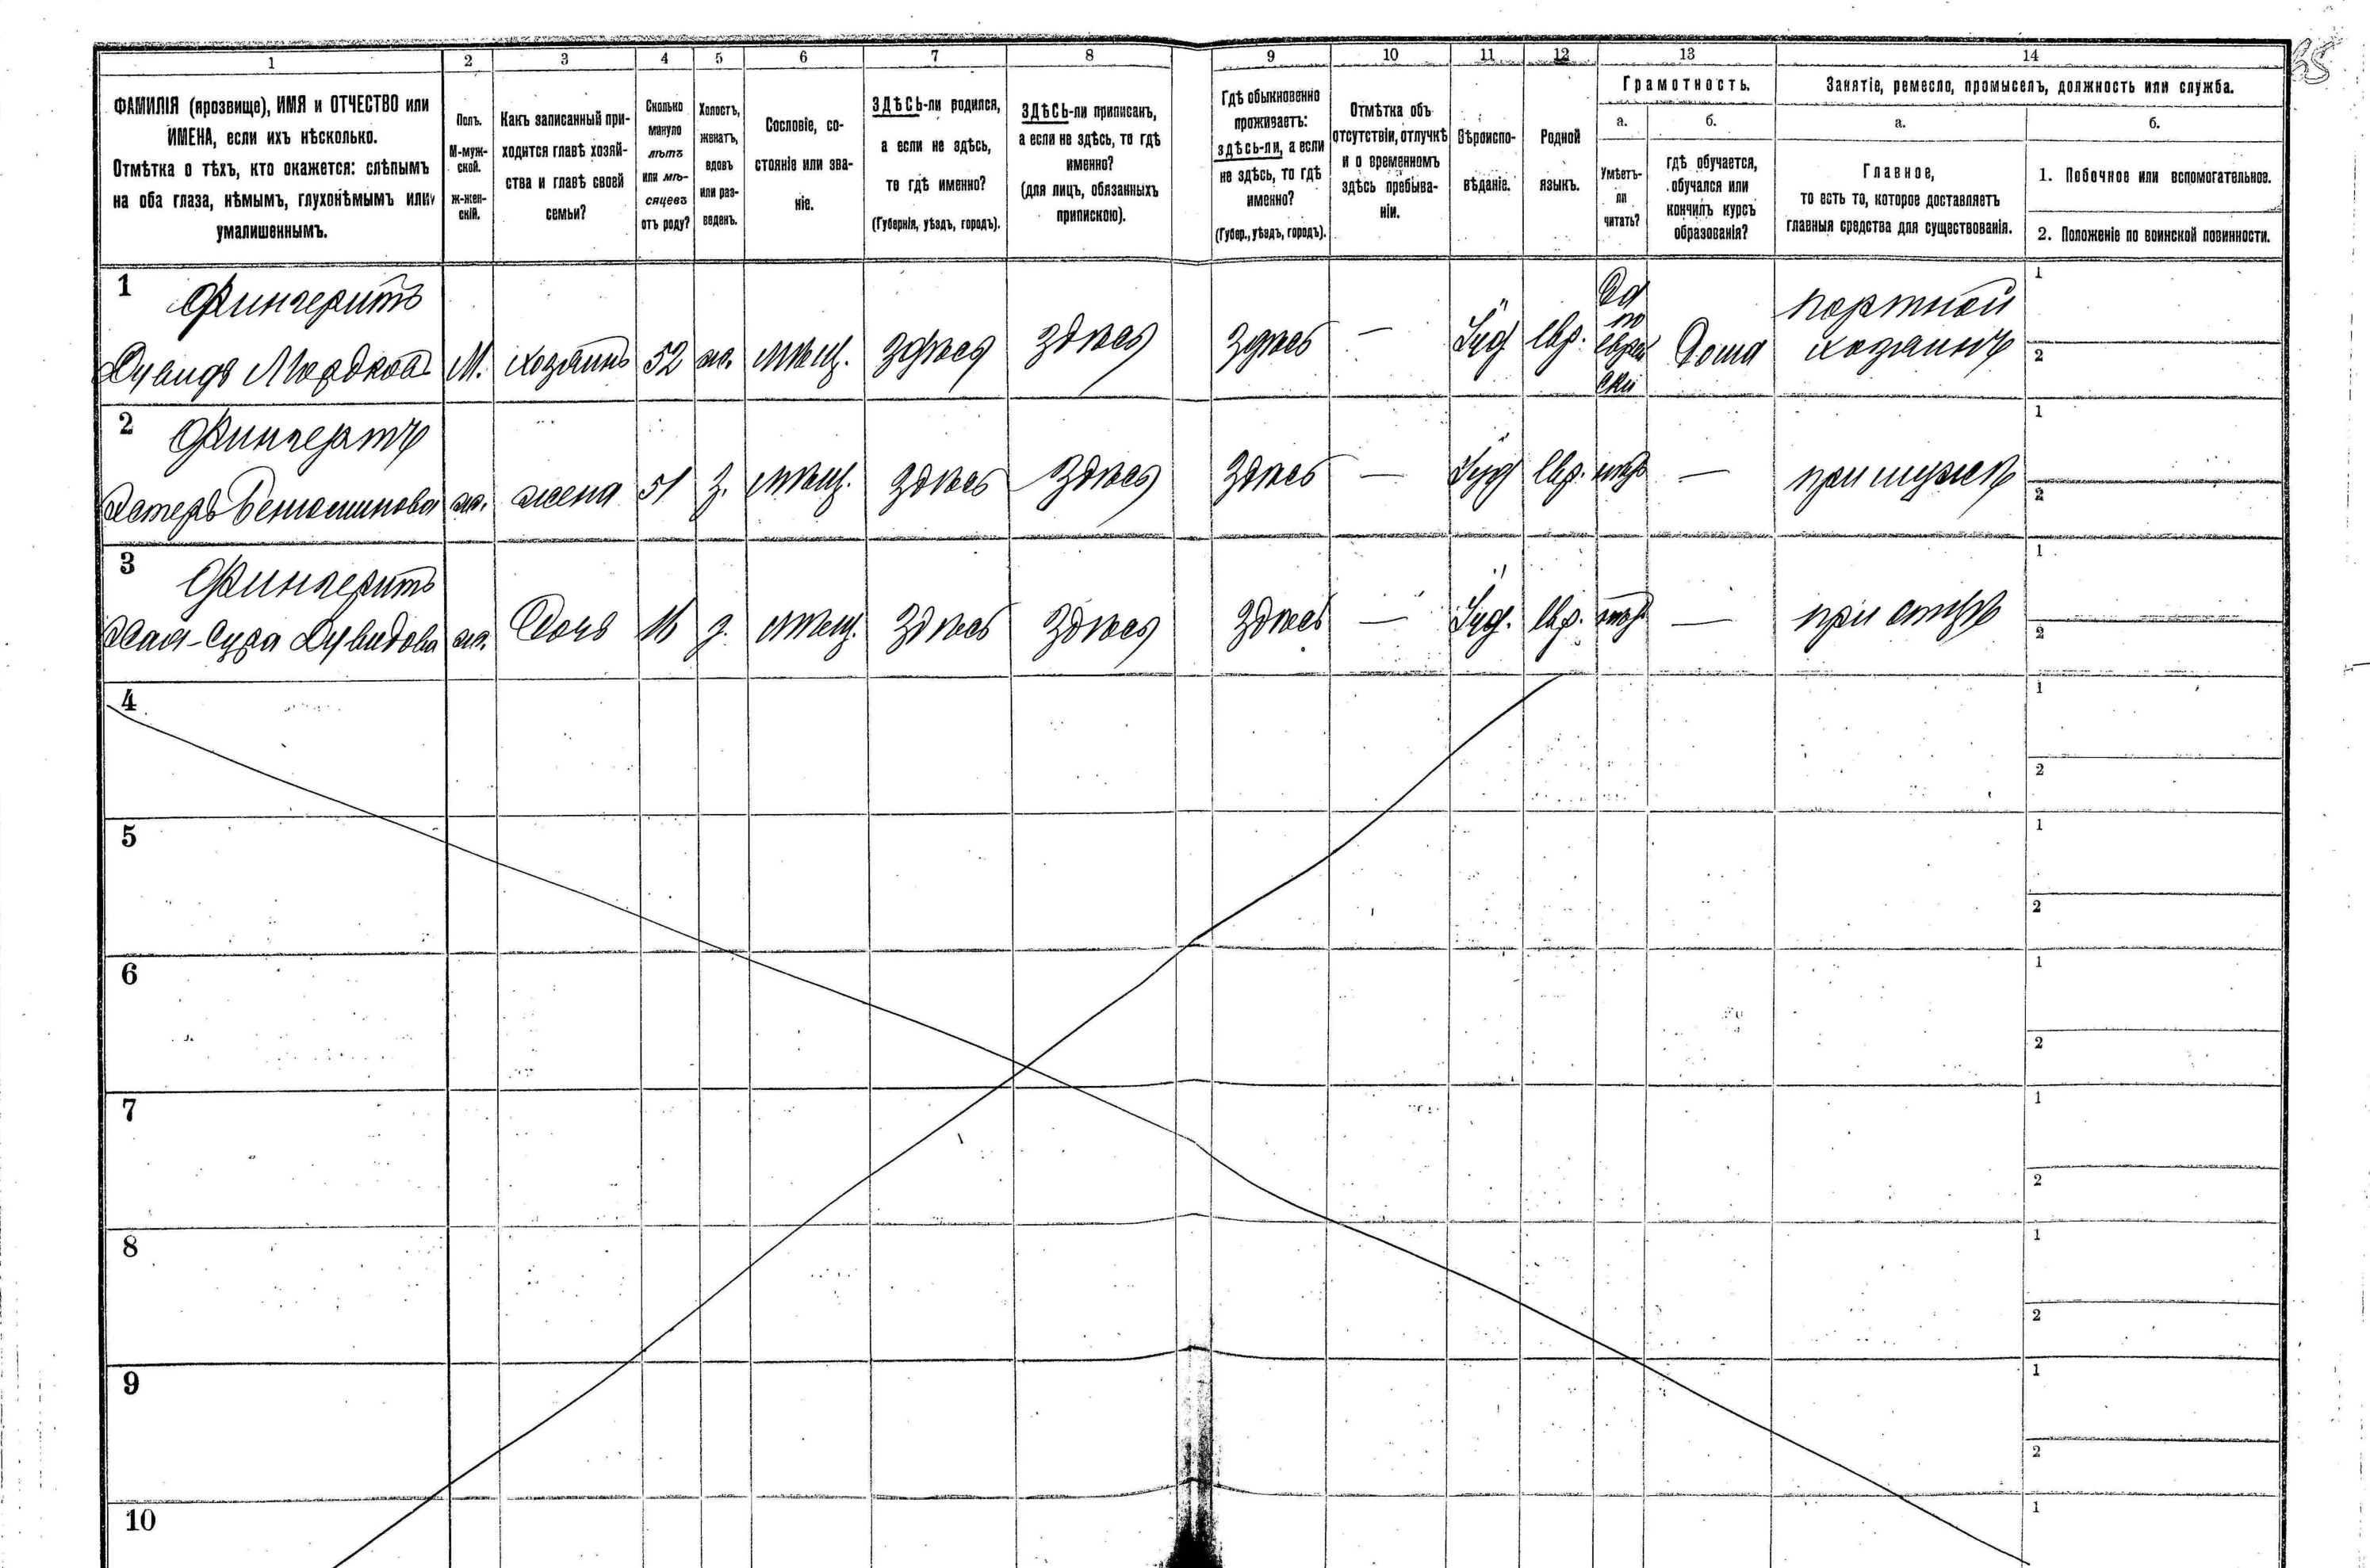 1 2 3 4 5 6 7 8 9 10 11 12 13 14
ФАМИЛІЯ (прозвище), ИМЯ и ОТЧЕСТВО или
ИМЕНА, если ихъ нѣсколько.
Отмѣтка о тѣхъ, кто окажется: слѣпымъ
на оба глаза, нѣмымъ, глухонѣмымъ или
умалишеннымъ.
Полъ.
М-муж-
ской.
ж-жен-
скій.
Какъ записанный при-
ходится главѣ хозяй-
ства и главѣ своей
семьи?
Сколько
минуло
лѣтъ
или мѣ-
сяцевъ
отъ роду?
Холостъ,
женатъ,
вдовъ
или раз-
веденъ.
Сословіе, со-
стояніе или зва-
ніе.
ЗДѢСЬ-ли родился,
а если не здѣсь,
то гдѣ именно?
(Губернія, уѣздъ, городъ).
ЗДѢСЬ-ли приписанъ,
а если не здѣсь, то гдѣ
именно?
(для лицъ, обязанныхъ
припискою).
Гдѣ обыкновенно
проживаетъ:
здѣсь-ли, а если
не здѣсь, то гдѣ
именно?
(Губер., уѣздъ, городъ).
Отмѣтка объ
отсутствіи, отлучкѣ
и о временномъ
здѣсь пребыва-
ніи.
Вѣроиспо-
вѣданіе.
Родной
языкъ.
Грамотность.
а.
Умѣетъ-
ли
читать?
б.
гдѣ обучается,
обучался или
кончилъ курсъ
образованія?
Занятіе, ремесло, промыселъ, должность или служба.
а.
Главное,
то есть то, которое доставляетъ
главныя средства для существованія.
б.
1. Побочное или вспомогательное.
2. Положеніе по воинской повинности.
1 Фингеритъ
Дувидъ Мордков М. хозяинъ 52 ж. мѣщ. здѣсь здѣсь здѣсь — Іуд евр. Да
по
еврей
ски
Дома
портной
хозяинъ
1
2
2 Фингеритъ
Эстеръ Беньоминова ж. жена 51 з. мѣщ. здѣсь здѣсь здѣсь — Іуд евр. нѣтъ — при мужѣ
1
2
3 Фингеритъ
Хая-Сура Дувидова ж. Дочь 16 мѣщ. здѣсь здѣсь здѣсь — Іуд. евр. нѣтъ — при отцѣ
1
2
4
1
2
5
1
2
6
1
2
7
1
2
8
1
2
9
1
2
10
1